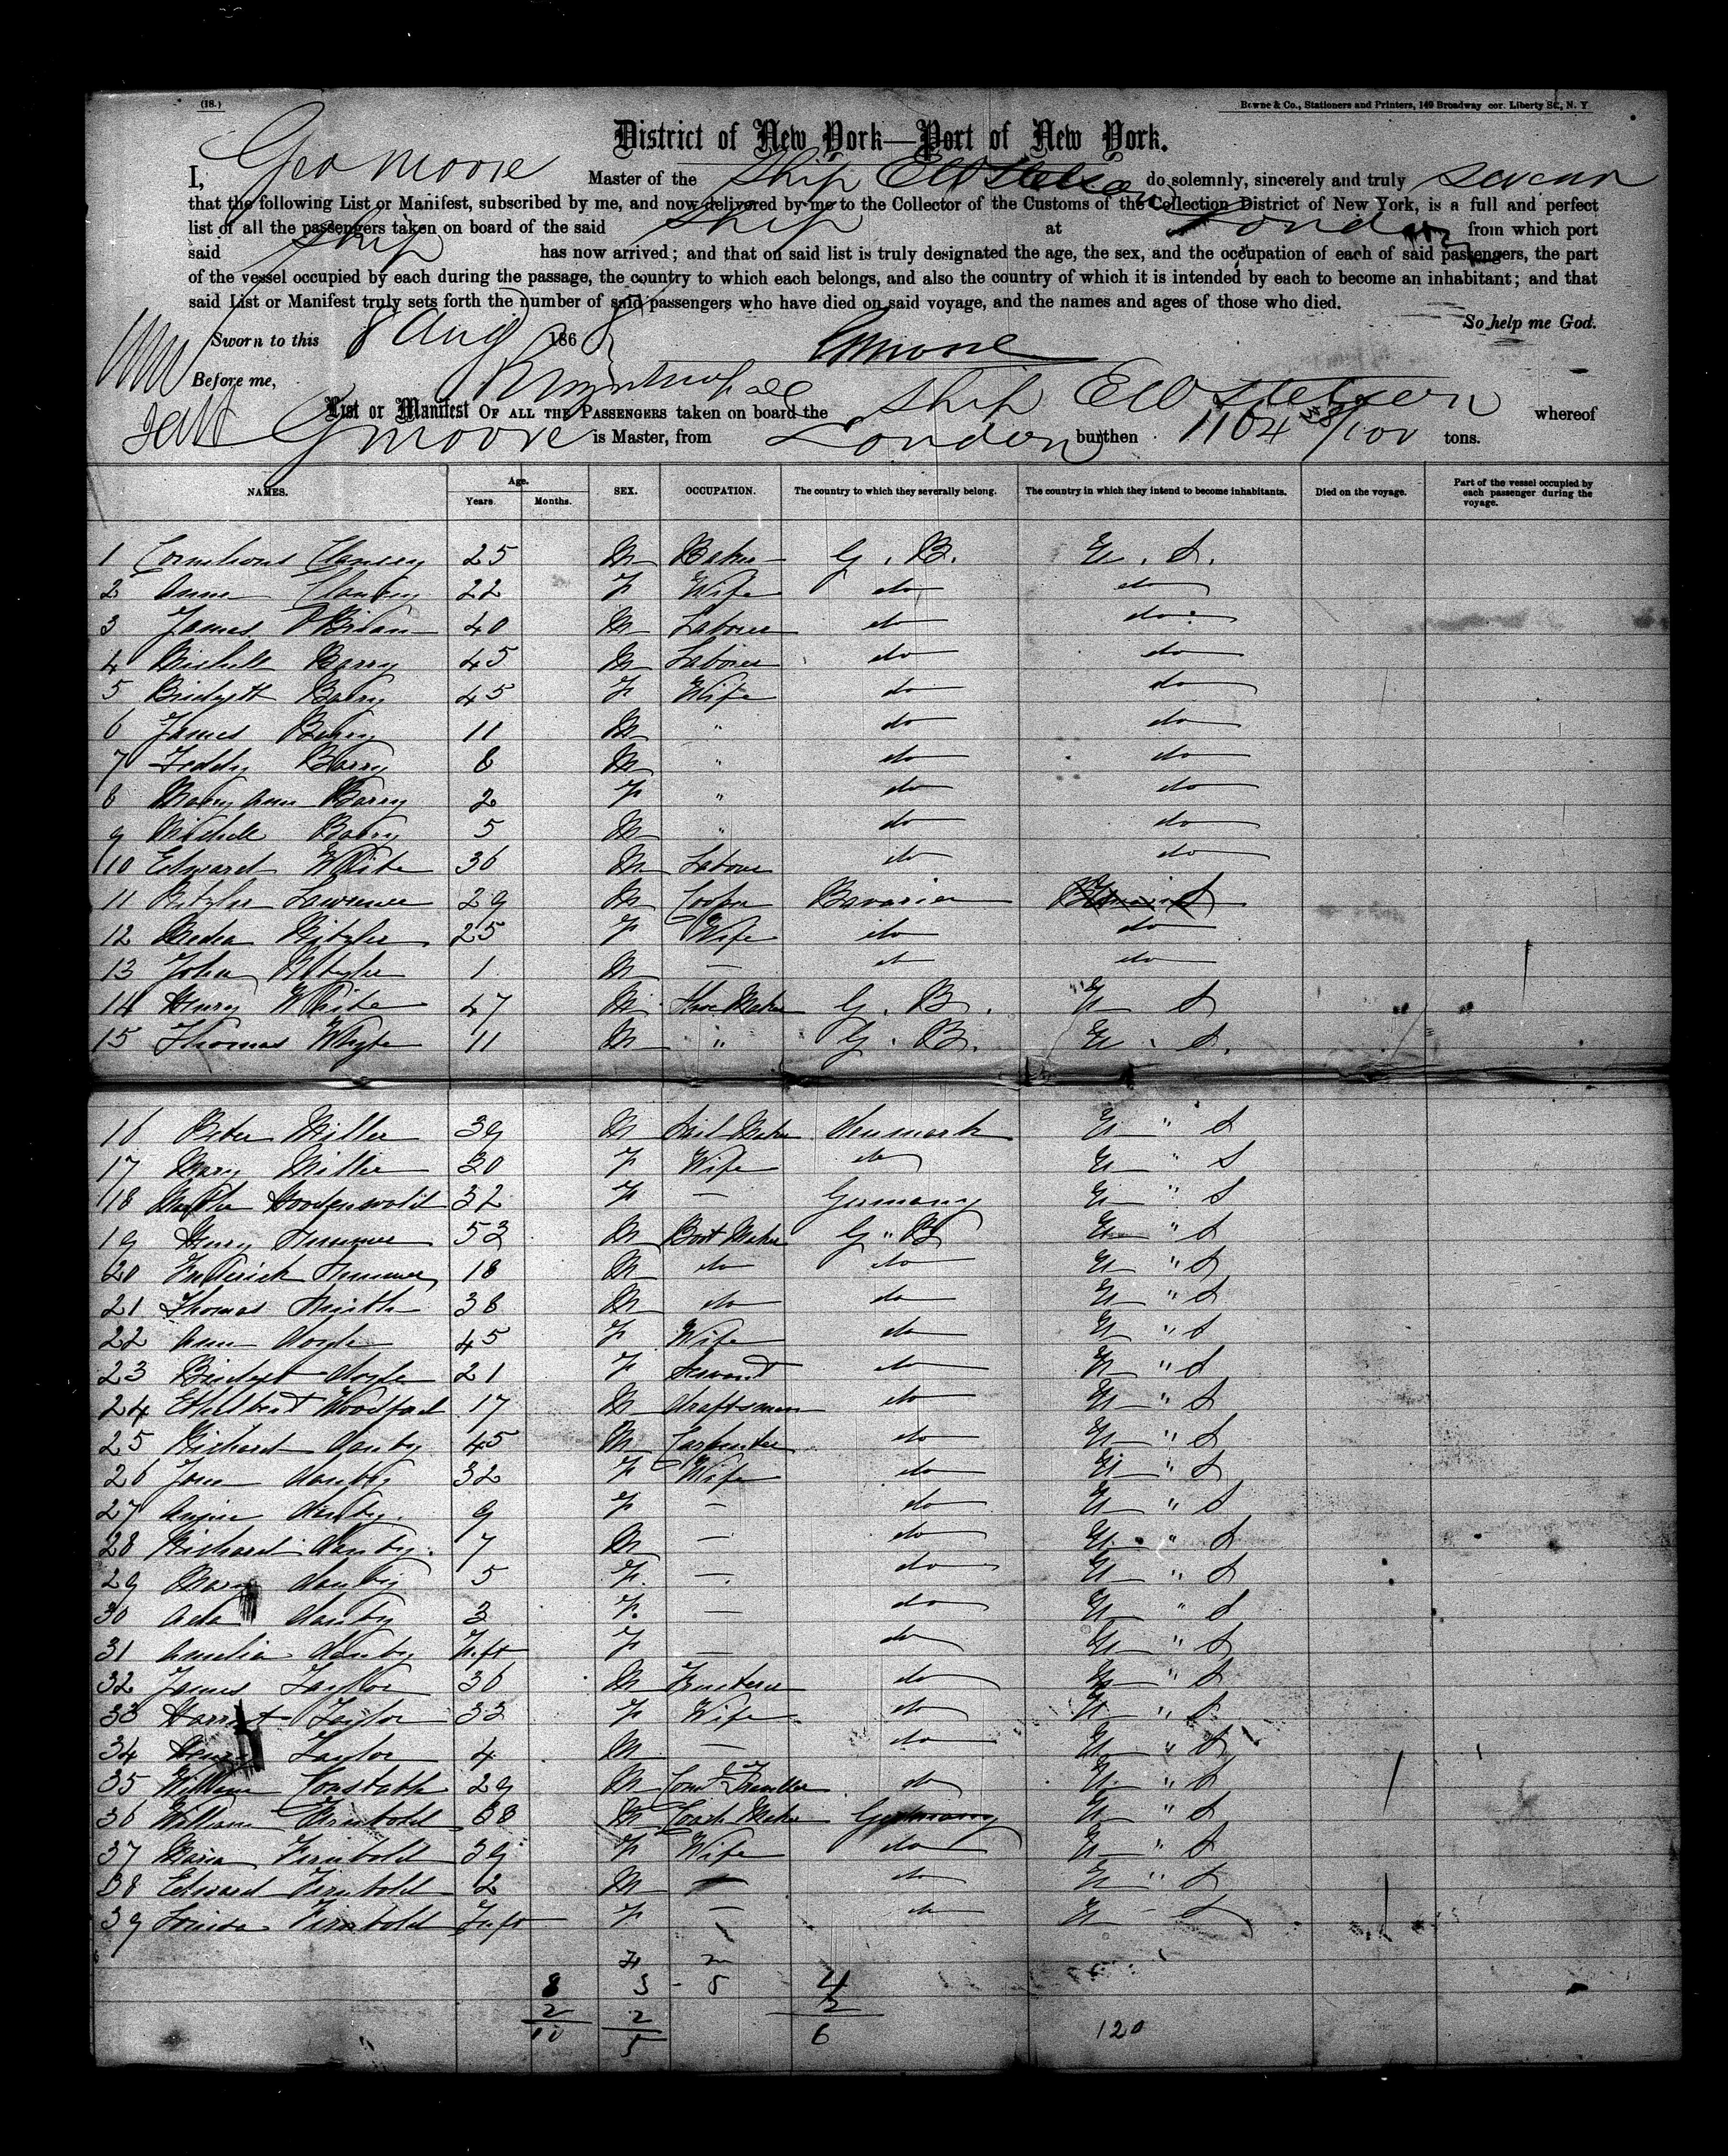 (18.)
Bowne & Co., Stationers and Printers, 149 Broadway cor. Liberty St., N. Y
District of New York—Port of New York.
I, Geo Moore Master of the Ship E W Stetson do solemnly, sincerely and truly swear
that the following List or Manifest, subscribed by me, and now delivered by me to the Collector of the Customs of the Collection District of New York, is a full and perfect
list of all the passengers taken on board of the said Ship at London from which port
said Ship has now arrived; and that on said list is truly designated the age, the sex, and the occupation of each of said passengers, the part
of the vessel occupied by each during the passage, the country to which each belongs, and also the country of which it is intended by each to become an inhabitant; and that
said List or Manifest truly sets forth the number of said passengers who have died on said voyage, and the names and ages of those who died.
So help me God.
Sworn to this 8 Aug 1868 G Moore
Before me,
List or Manifest OF ALL THE PASSENGERS taken on board the Ship E W Stetson whereof
G Moore is Master, from London burthen 1104 tons.
NAMES. Age. Years. Months. SEX. OCCUPATION. The country to which they severally belong. The country in which they intend to become inhabitants. Died on the voyage. Part of the vessel occupied by each passenger during the voyage.
1 Cornelious Clancey 25 M Baker G. B. U. S.
2 Anne Clancey 22 F Wife do do
3 James O'Brian 40 M Labourer do do
4 Michell Barry 45 M Labourer do do
5 Bridgett Barry 45 F Wife do do
6 James Barry 11 M " do do
7 Teddy Barry 8 M " do do
8 Mary Ann Barry 2 F " do do
9 Mitchell Barry 5 M " do do
10 Edward White 36 M Labour do do
11 Lawrence 29 M Cooper Bavaria
12 25 F Wife do do
13 John 1 M — do do
14 Henry White 47 M Shoe Maker G. B. U S
15 Thomas Whyte 11 M " G. B. U. S.
16 Peter Miller 39 M Sail Maker Denmark U " S
17 Mary Miller 30 F Wife do U " S
18 32 F — Germany U " S
19 Henry 53 M Boot Maker G " B U " S
20 Frederick 18 M do do U " S
21 Thomas Smith 38 M do do U " S
22 Ann Doyle 45 F Wife do U " S
23 Bridget Doyle 21 F Servant do U " S
24 Ethelbert Woodford 17 M draftsman do U " S
25 Richard Danby 45 M Carpenter do U " S
26 Jane Danby 32 F Wife do U " S
27 Annie Danby 9 F — do U " S
28 Richard Danby 7 M — do U " S
29 Mary Danby 5 F — do U " S
30 Ada Danby 3 F — do U " S
31 Amelia Danby Inft F — do U " S
32 James Taylor 36 M do U " S
33 Harriet Taylor 33 F Wife do U " S
34 Henry Taylor 4 M — do U " S
35 William Constable 29 M do U " S
36 William Firnbold 38 M Coach Maker Germany U " S
37 Maria Firnbold 39 F Wife do U " S
38 Edward Firnbold 2 M — do U " S
39 Louisa Firnbold Inft F — do U - S
8 3 - 8 4
2 2 2
10 5 6 120